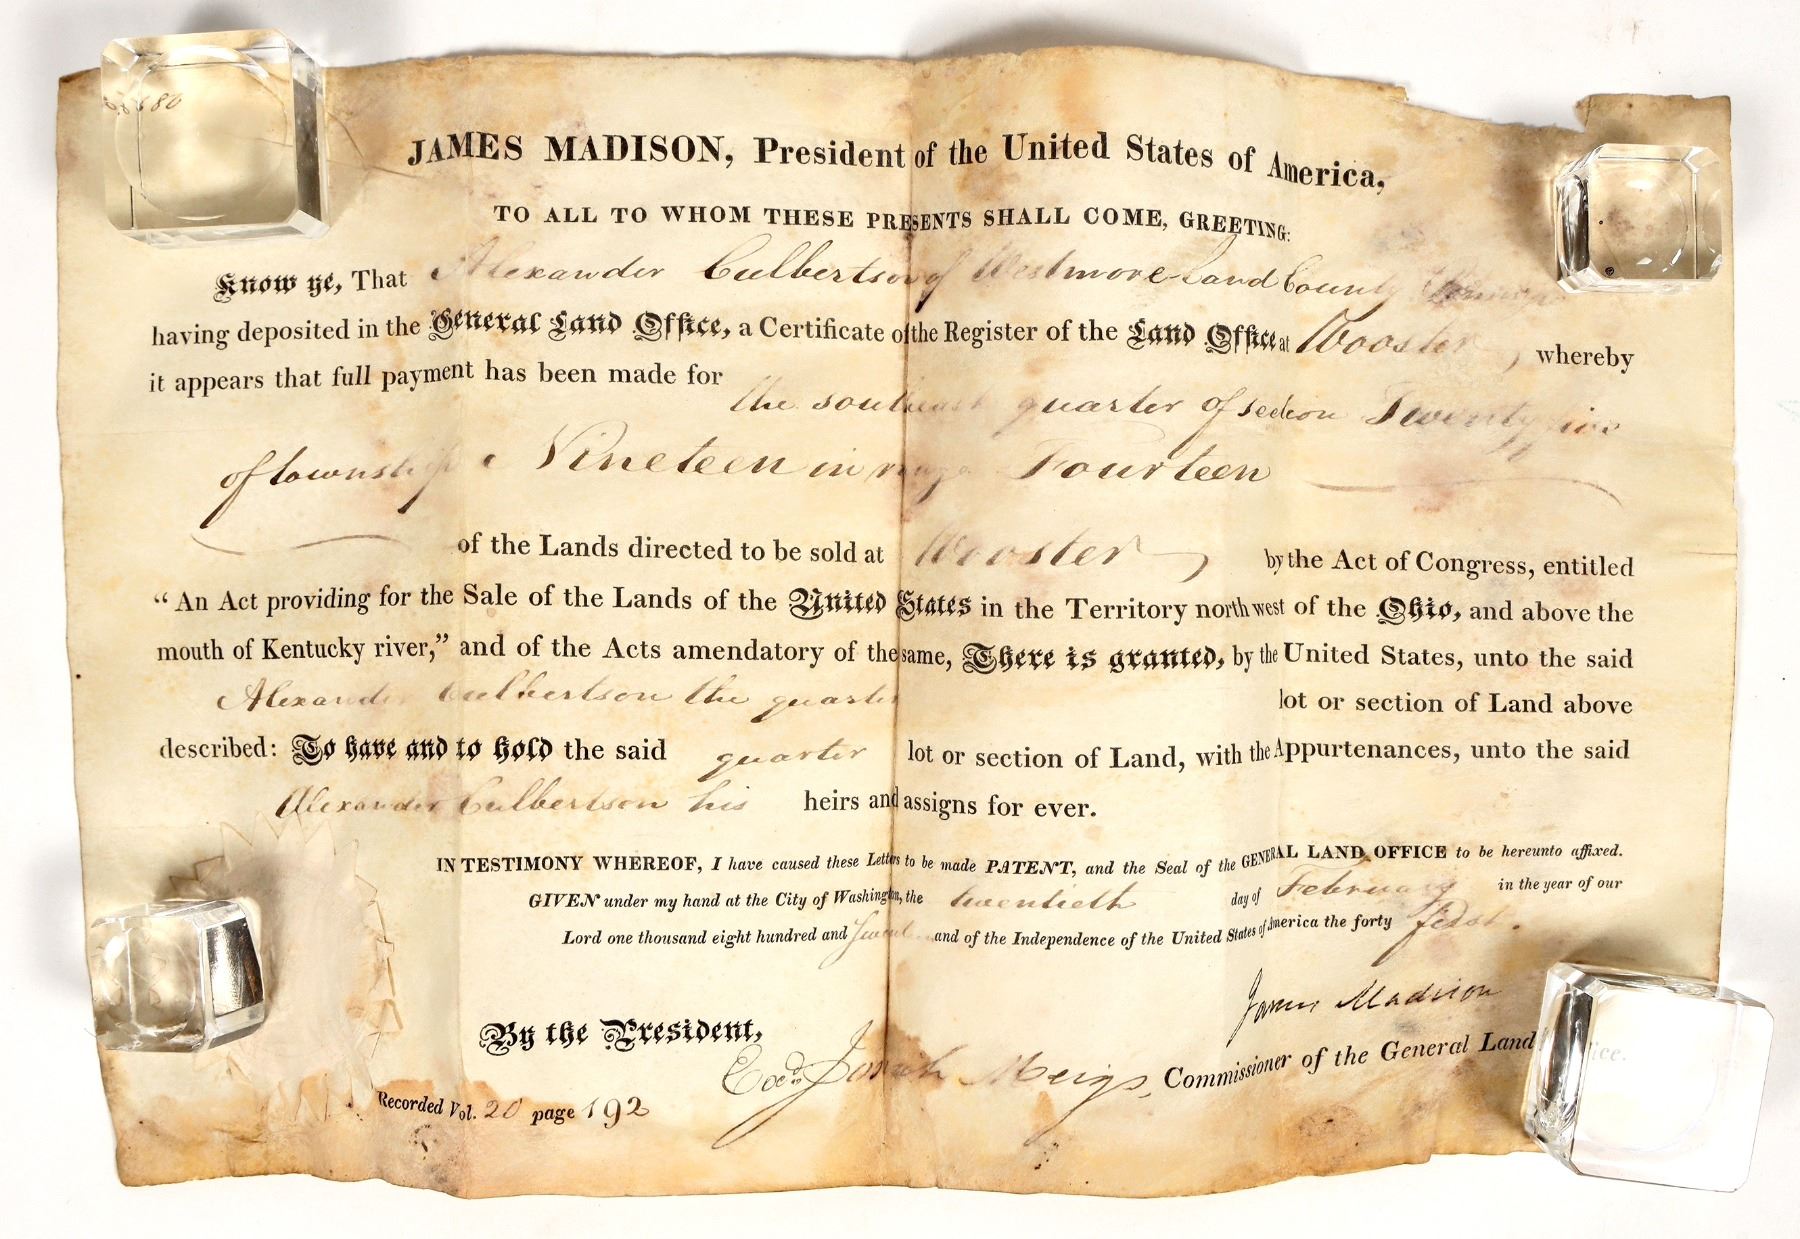 JAMES MADISON, President of the United States of America,
TO ALL TO WHOM THESE PRESENTS SHALL COME, GREETING:
Know ye, That Alexander Culbertson of Westmoreland County
having deposited in the General Land Office, a Certificate of the Register of the Land Office at Wooster, whereby
it appears that full payment has been made for
the southeast quarter of section Twenty five
of township Nineteen in range Fourteen
of the Lands directed to be sold at Wooster by the Act of Congress, entitled
“An Act providing for the Sale of the Lands of the United States in the Territory northwest of the Ohio, and above the
mouth of Kentucky river,” and of the Acts amendatory of the same, There is granted, by the United States, unto the said
Alexander Culbertson the quarter lot or section of Land above
described: To have and to hold the said quarter lot or section of Land, with the Appurtenances, unto the said
Alexander Culbertson his heirs and assigns for ever.
IN TESTIMONY WHEREOF, I have caused these Letters to be made PATENT, and the Seal of the GENERAL LAND OFFICE to be hereunto affixed.
GIVEN under my hand at the City of Washington, the twentieth day of February in the year of our
Lord one thousand eight hundred and and of the Independence of the United States of America the forty first.
James Madison
By the President,
Josiah Meigs, Commissioner of the General Land Office.
Recorded Vol. 20 page 192